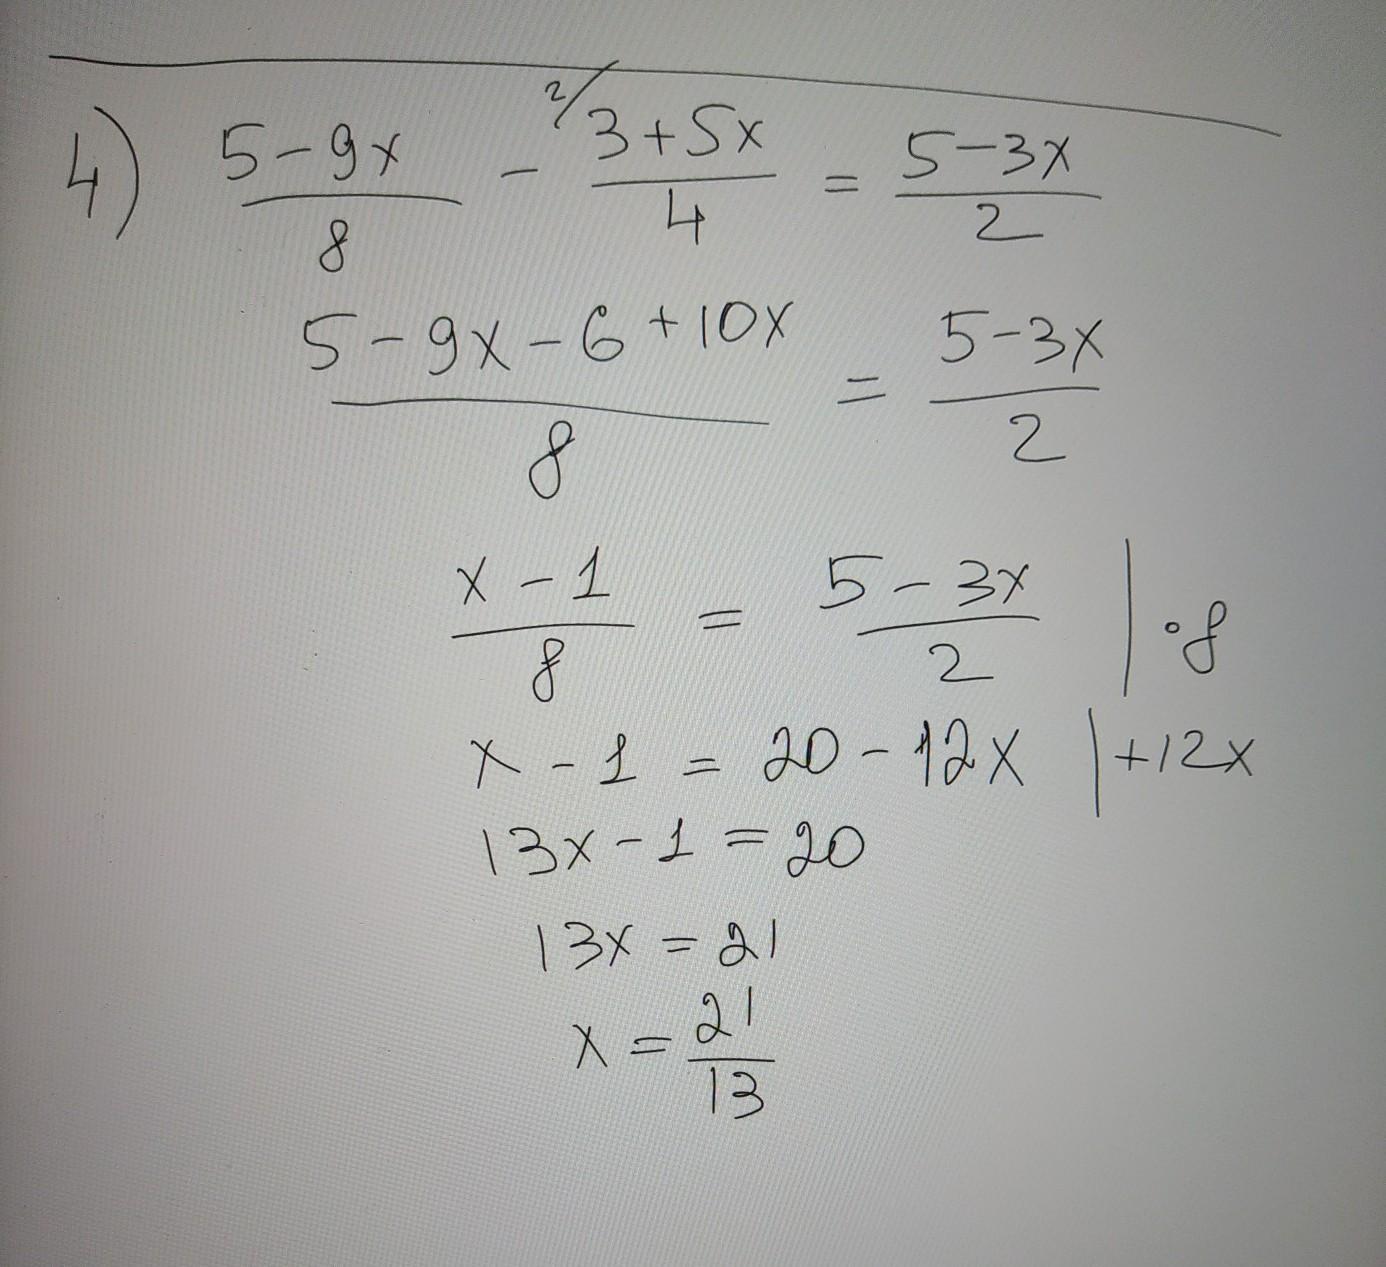 4) (5-9x)/8 - ²/(3+5x)/4 = (5-3x)/2
(5-9x-6+10x)/8 = (5-3x)/2
(x-1)/8 = (5-3x)/2 |·8
x-1 = 20-12x |+12x
13x-1=20
13x=21
x=21/13